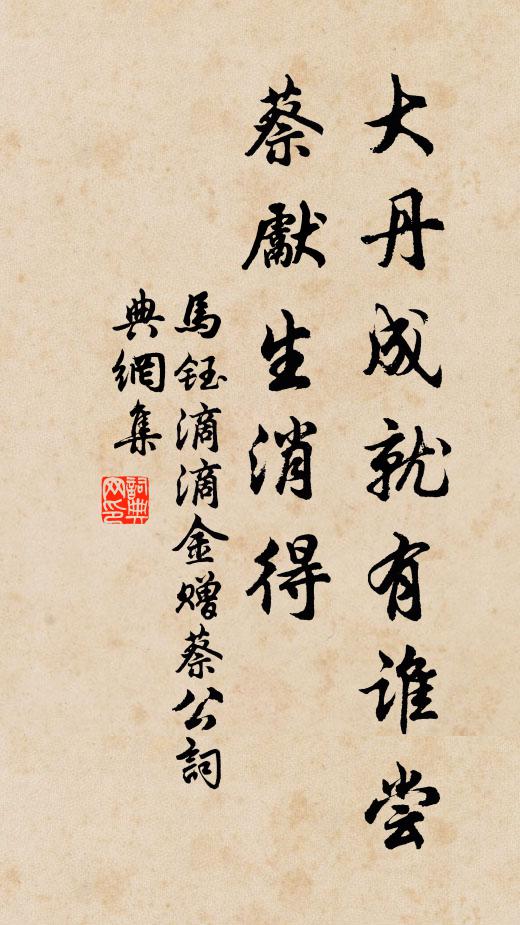 大丹成就有谁尝
蔡獻生消得
馬鈺滴滴金赠蔡公詞
典網集
詞典网印